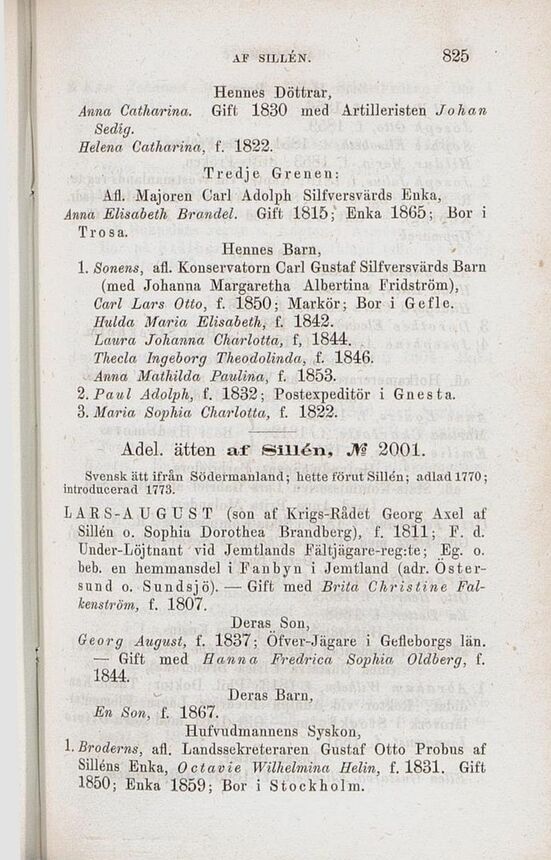 AF SILLÉN. 825
Hennes Döttrar,
Anna Catharina. Gift 1830 med Artilleristen Johan
Sedig.
Helena Catharina, f. 1822.
Tredje Grenen:
Afl. Majoren Carl Adolph Silfversvärds Enka,
Anna Elisabeth Brandel. Gift 1815; Enka 1865; Bor i
Trosa.
Hennes Barn,
1. Sonens, afl. Konservatorn Carl Gustaf Silfversvärds Barn
(med Johanna Margaretha Albertina Fridström),
Carl Lars Otto, f. 1850; Markör; Bor i Gefle.
Hulda Maria Elisabeth, f. 1842.
Laura Johanna Charlotta, f, 1844.
Thecla Ingeborg Theodolinda, f. 1846.
Anna Mathilda Paulina, f. 1853.
2. Paul Adolph, f. 1832; Postexpeditör i Gnesta.
3. Maria Sophia Charlotta, f. 1822.
Adel. ätten af Sillén, № 2001.
Svensk ätt ifrån Södermanland; hette förut Sillén; adlad 1770;
introducerad 1773.
LARS-AUGUST (son af Krigs-Rådet Georg Axel af
Sillén o. Sophia Dorothea Brandberg), f. 1811; F. d.
Under-Löjtnant vid Jemtlands Fältjägare-reg:te; Eg. o.
beb. en hemmansdel i Fanbyn i Jemtland (adr. Öster-
sund o. Sundsjö). — Gift med Brita Christine Fal-
kenström, f. 1807.
Deras Son,
Georg August, f. 1837; Öfver-Jägare i Gefleborgs län.
— Gift med Hanna Fredrica Sophia Oldberg, f.
1844.
Deras Barn,
En Son, f. 1867.
Hufvudmannens Syskon,
1. Broderns, afl. Landssekreteraren Gustaf Otto Probus af
Silléns Enka, Octavie Wilhelmina Helin, f. 1831. Gift
1850; Enka 1859; Bor i Stockholm.